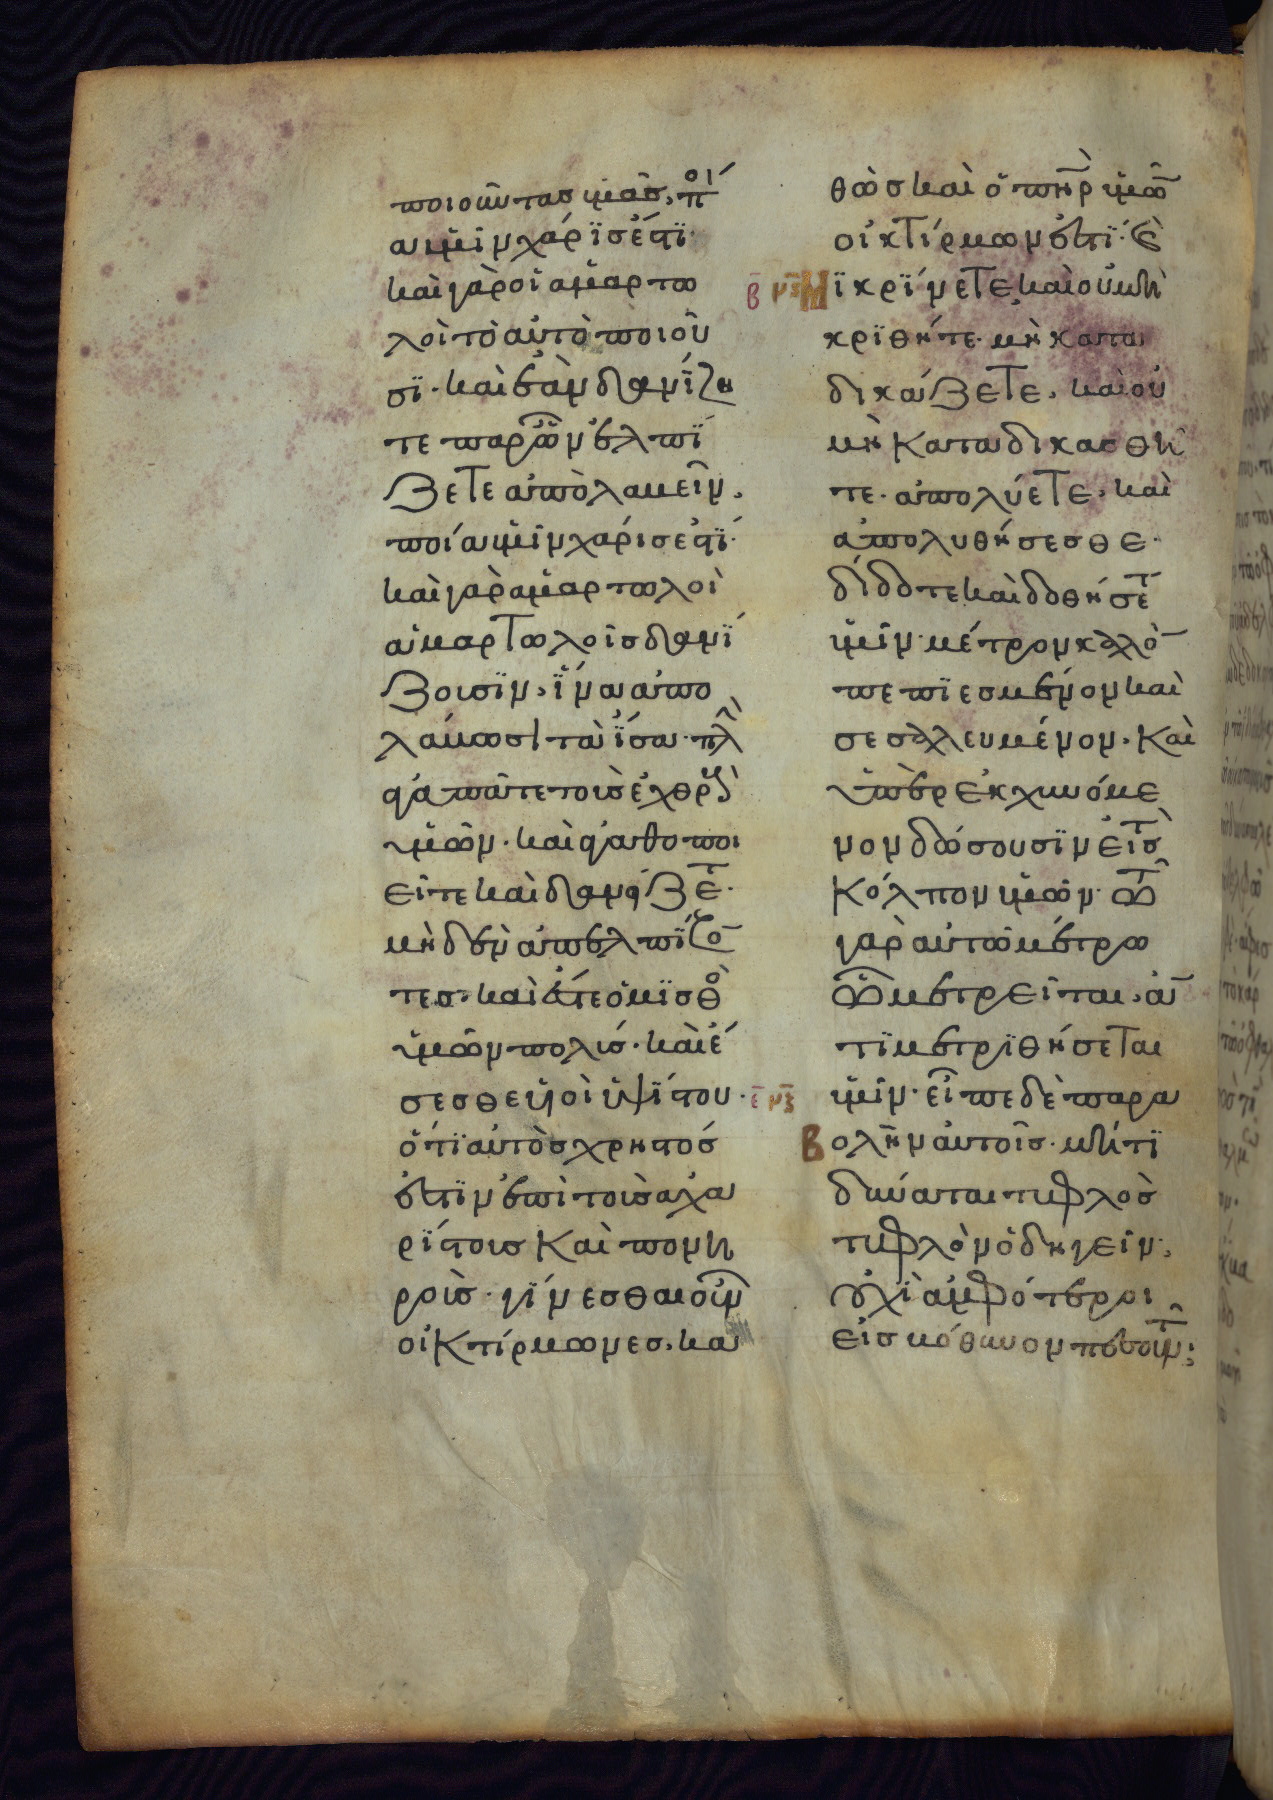 ποιοῦντας ὑμᾶς, ποί
α ὑμῖν χάρϊς ἐστϊ·
καὶ γὰρ οἱ ἁμαρτω
λοὶ τὸ αὐτὸ ποιοῦ
σϊ· καὶ ἐὰν δανίζη
τε παρ ὧν ἐλπί
ζετε ἀπολαβεῖν,
ποία ὑμῖν χάρις ἐστϊ·
καὶ γὰρ ἁμαρτωλοὶ
ἁμαρτωλοῖς δανϊ
ζουσϊν, ἵνα ἀπο
λάβωσι τὰ ἴσα· πλὴ
ἀγαπᾶτε τοὺς ἐχθροὺς
ὑμῶν· καὶ ἀγαθοποι
εῖτε καὶ δανείζετ·
μηδὲν ἀπελπίζο
τες· καὶ ἔσται ὁ μισθὸ
ὑμῶν πολύς· καὶ ἔ
σεσθε υἱοὶ ὑψίστου·
ὅτι αὐτὸς χρηστός
ἐστιν ἐπὶ τοὺς ἀχα
ρίστους καὶ πονη
ρούς· γίνεσθαι οὖν
οἰκτίρμωνες, κα
θὼς καὶ ὁ πηρ ὑμῶ
οἰκτίρμων ἐστϊ· Ε
β μζ Μϊ κρϊνετε, καὶ οὐ μὴ
κρϊθήτε· μὴ κατα
δικάζετε, καὶ οὐ
μὴ καταδικασθη
τε· ἀπολύετε, καὶ
ἀπολυθήσεσθε·
δίδοτε καὶ δοθήσετ
ὑμῖν· μέτρον καλὸ
πεπϊεσμένον καὶ
σεσαλευμένον· καὶ
ὑπερεκχυνόμε
νον δώσουσϊν εἰς τὸ
κόλπον ὑμῶν· τῷ
γὰρ αὐτῶ μέτρω
ᾧ μετρεῖται, ἀ
τϊμετρϊθήσεται
ε μζ ὑμῖν· εἶπε δὲ παρα
βολὴν αὐτοῖς· μήτϊ
δύναται τυφλὸς
τυφλὸν ὁδηγεῖν,
οὐχὶ ἀμφότεροι
εἰς βόθυνον πεσοῦντ: